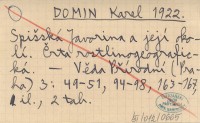 DOMIN Karel 1922.
Spišská Javorina a její oko-
lí. Črta rostlinogeografic-
ká. — Věda přírodní (Pra-
ha) 3: 49-51, 94-98, 165-167,
1 il., 2 tab.